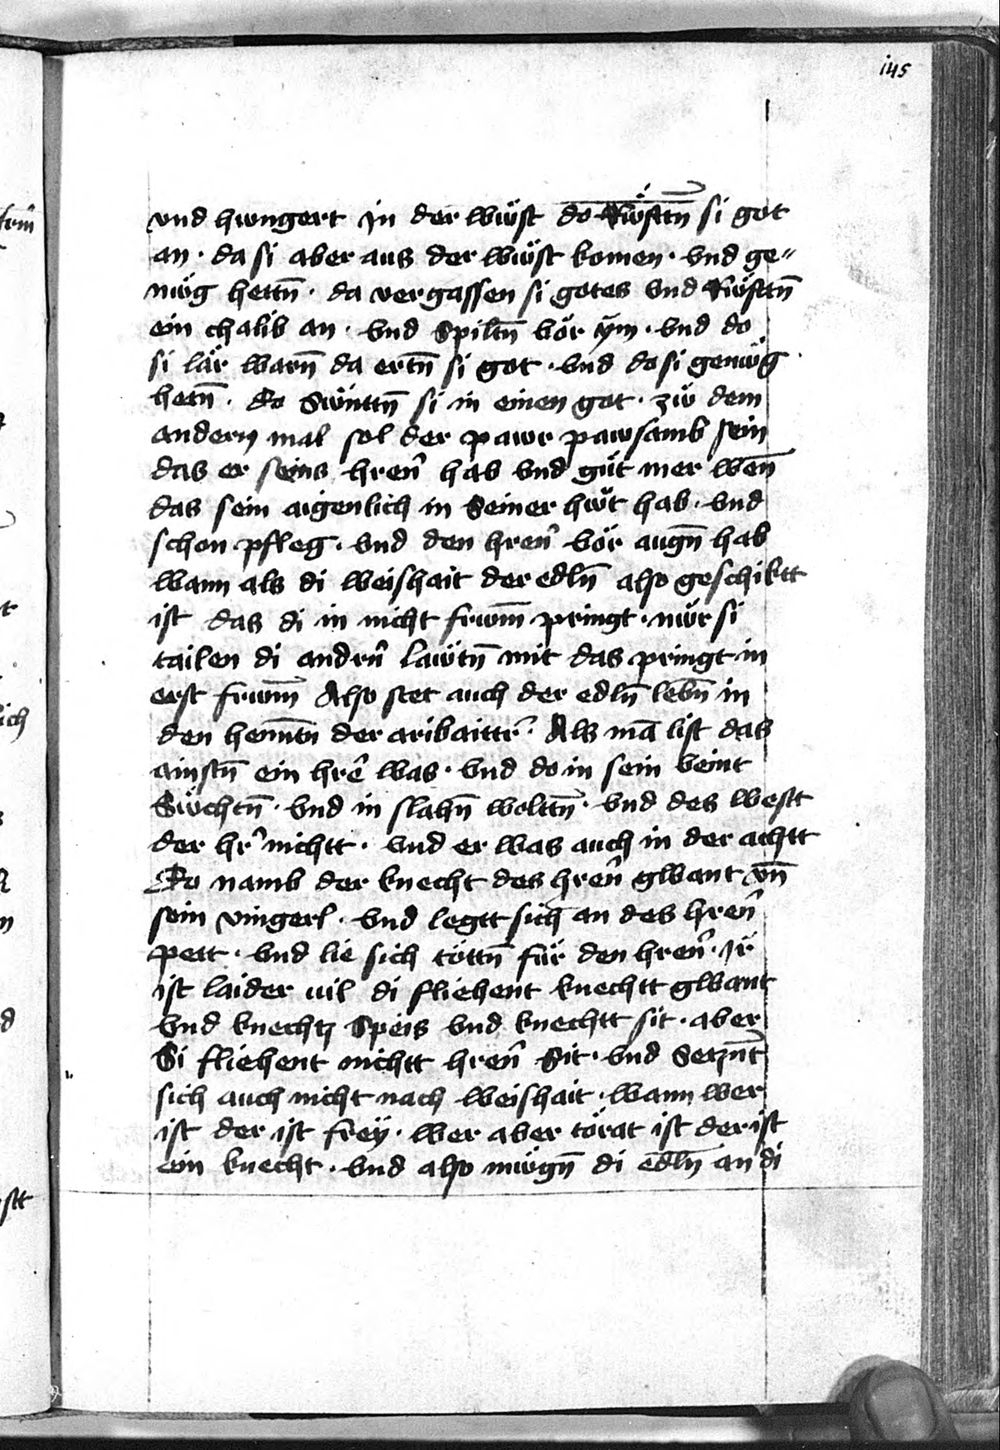 145
vnd hwngert jn der wüst do Rüsttn̄ si got
an · da si aber aus der wüst komen · vnd ge„
nüg hettn̄ · da vergassen si gotes vnd Rüsttn̄
ein chalib an · vnd Spiltn̄ vör ÿm · vnd do
si lär warn̄ da ertn̄ si got · vnd do si genüg
hetn̄ · do Swüttn̄ si in einen got · zw̋ dem
andern mal sol der pawr pawsamb sein
das er seins hren̄ hab vnd güt mer wen̄
das sein aigenlich in Seiner hüt hab · vnd
schon pfleg · vnd den hren̄ vör augn̄ hab
wann als di weishait der edln̄ also geschiktt
ist das di in nicht frwm̄ pringt · nür si
tailen di andrn̄ lawtn̄ mit das pringt in
erst frwm̄ Also stet auch der edln̄ lebn̄ in
den henntn̄ der aribaittr̄ · Als mā list das
ainstn̄ ein hrē was · vnd do in sein veint
Süchtn̄ · vnd in slahn̄ wolttn̄ · vnd des westt
der hr̄ nichtt · vnd er was auch in der achtt
Do namb der knecht des hren̄ gwant vn̄
sein vingerl · vnd legtt sich an des hren̄
pett · vnd lie sich töttn̄ für den hren̄ · jr
ist laider vil di fliehent knechtt gwant
vnd knechtz Speis vnd knechtt sit · aber
Si fliehent nichtt hren̄ Sit · vnd Setznt
sich auch nicht nach weishait · wann wer
ist der ist freÿ · wer aber törat ist der ist
ein knecht · vnd also mügn̄ di edln̄ an di